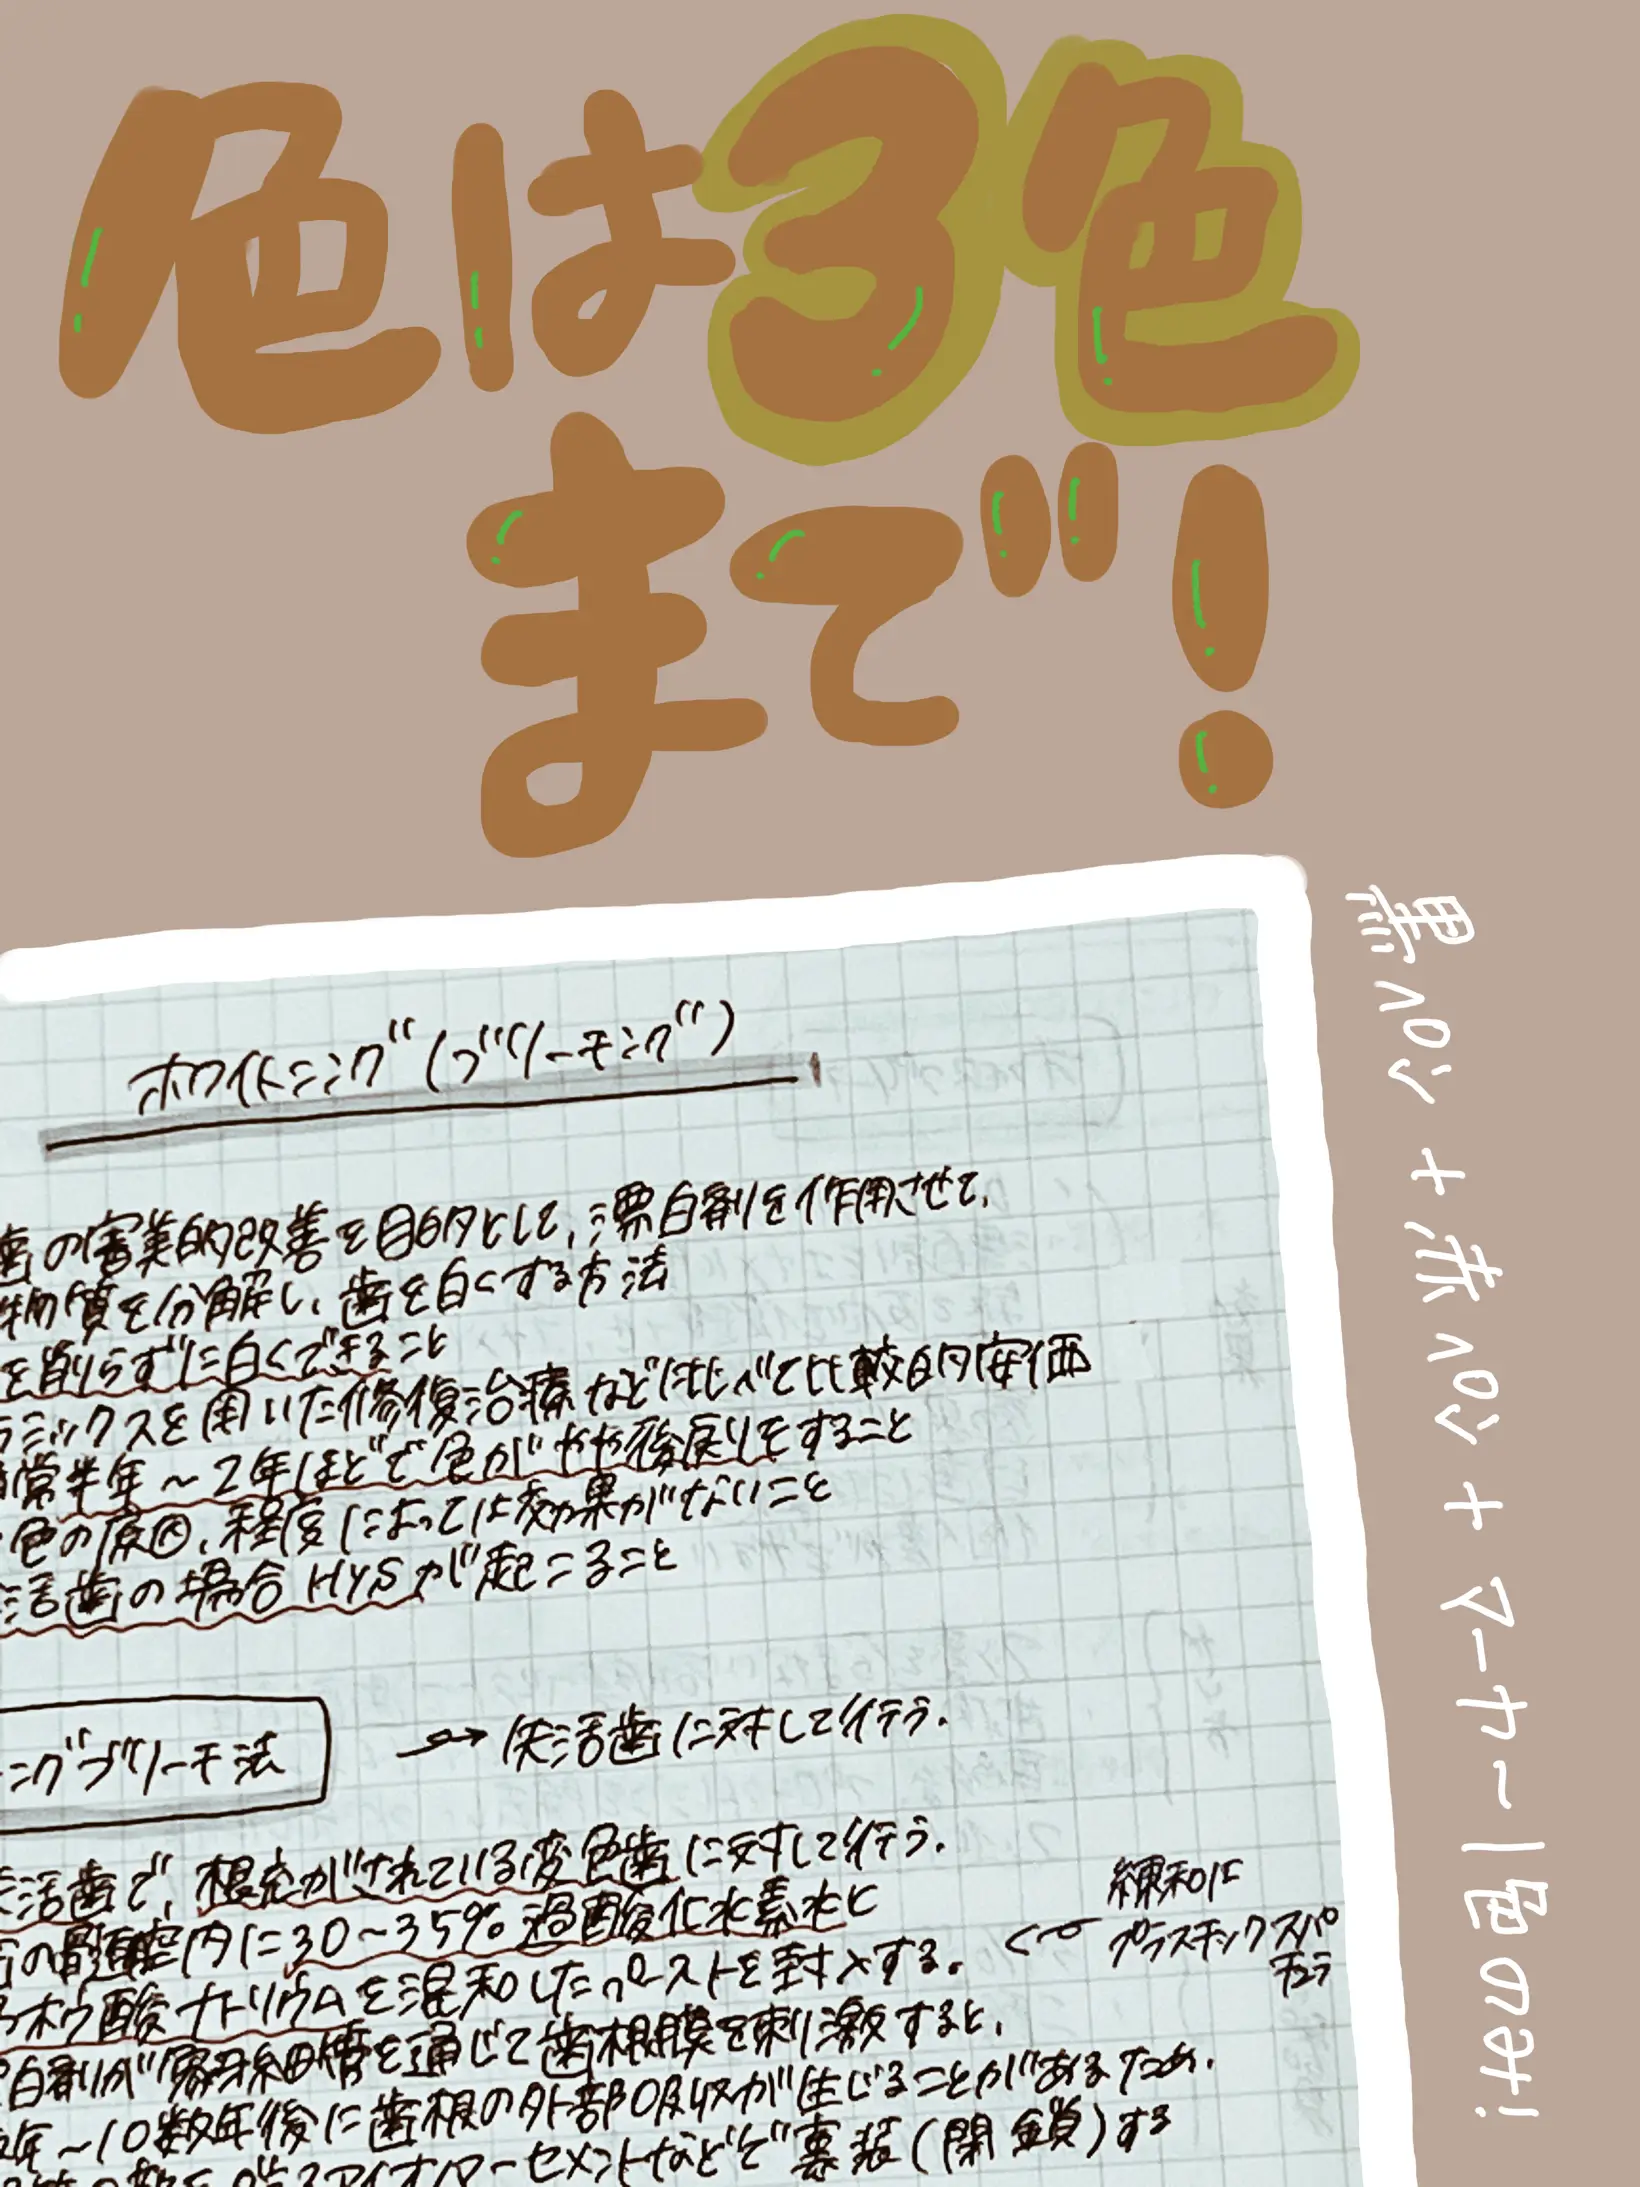 色は3色
まで!
黒ペン+赤ペン+マーカー1色のset!
ホワイトニング(ブリーチング)
歯の審美的改善を目的として、漂白剤を作用させて、
物質を分解し、歯を白くする方法
を削らずに白くできること
ラミックスを用いた修復治療などに比べて比較的安価
常半年~2年ほどで色がやや後戻りをすること
色の原因、程度によっては効果がないこと
活歯の場合HySが起こること
ニングブリーチ法
→失活歯に対して行う.
活歯で、根充がされている変色歯に対して行う.
の髄腔内に30~35%過酸化水素水と
ホウ酸ナトリウムを混和したペーストを封入する.
練和は
プラスチックスパ
チュラ
白剤が象牙細管を通じて歯根膜を刺激すると、
年~10数年後に歯根の外部吸収が生じることがあるため、
アイオノマーセメントなどで裏装(閉鎖)する